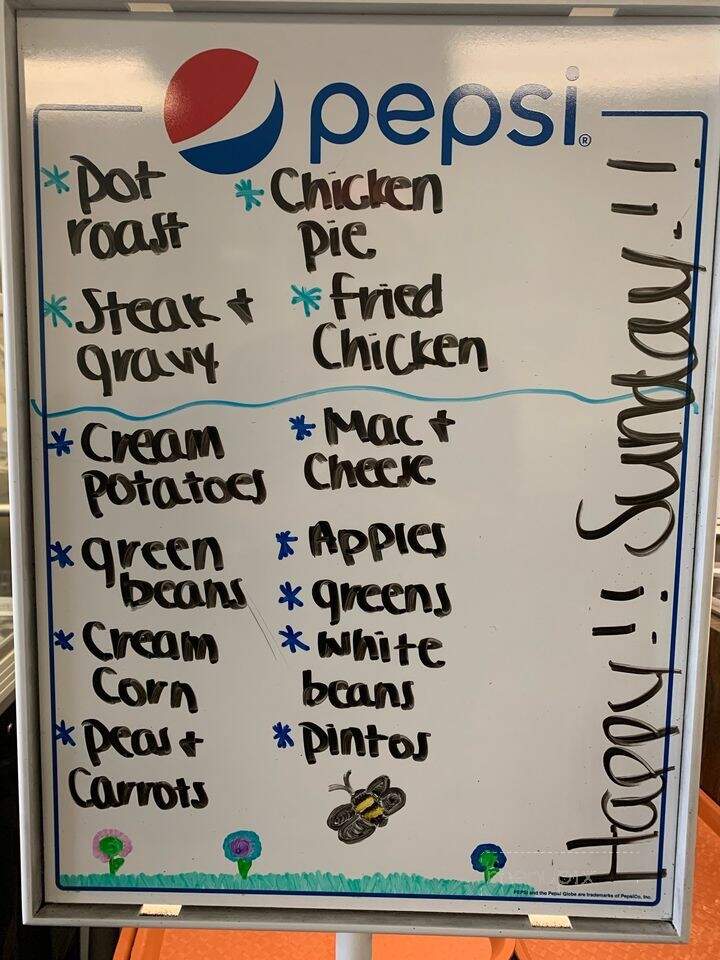 pepsi®
* Pot
roast
* Chicken
pie
* Steak +
gravy
* fried
Chicken
* Cream
potatoes
* Mac +
Cheese
* green
beans
* Apples
* greens
* Cream
Corn
* White
beans
* Peas +
Carrots
* pintos
Happy!! Sunday!!
PEPSI and the Pepsi Globe are trademarks of PepsiCo, Inc.